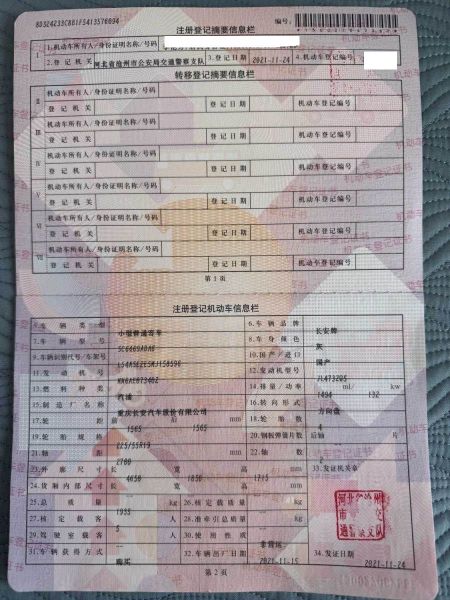 8D324233C881F5413576094
注册登记摘要信息栏
编号:
Ⅰ 1.机动车所有人/身份证明名称/号码
2.登记机关 河北省沧州市公安局交通警察支队 3.登记日期 2021-11-24 4.机动车登记编号
转移登记摘要信息栏
Ⅱ 机动车所有人/身份证明名称/号码
登记机关 登记日期 机动车登记编号
Ⅲ 机动车所有人/身份证明名称/号码
登记机关 登记日期 机动车登记编号
Ⅳ 机动车所有人/身份证明名称/号码
登记机关 登记日期 机动车登记编号
Ⅴ 机动车所有人/身份证明名称/号码
登记机关 登记日期 机动车登记编号
Ⅵ 机动车所有人/身份证明名称/号码
登记机关 登记日期 机动车登记编号
Ⅶ 机动车所有人/身份证明名称/号码
登记机关 登记日期 机动车登记编号
第 1 页
注册登记机动车信息栏
5.车辆类型 小型普通客车 6.车辆品牌 长安牌
7.车辆型号 8.车身颜色 灰
9.车辆识别代号/车架号 10.国产/进口 国产
11.发动机号 12.发动机型号 JL473ZQ5
13.燃料种类 汽油 14.排量/功率 1494 ml/ 132 kw
15.制造厂名称 重庆长安汽车股份有限公司 16.转向形式 方向盘
17.轮距 前 1565 后 1565 mm 18.轮胎数 4
19.轮胎规格 225/55R19 20.钢板弹簧片数 后轴 片
21.轴距 2700 mm 22.轴数 2
23.外廓尺寸 长 4650 宽 1850 高 1715 mm 33.发证机关章
24.货厢内部尺寸 长 宽 高 mm
25.总质量 1935 kg 26.核定载质量 kg
27.核定载客 5 人 28.准牵引总质量 kg
29.驾驶室载客 人 30.使用性质 非营运
31.车辆获得方式 购买 32.车辆出厂日期 2021-11-15 34.发证日期 2021-11-24
第 2 页